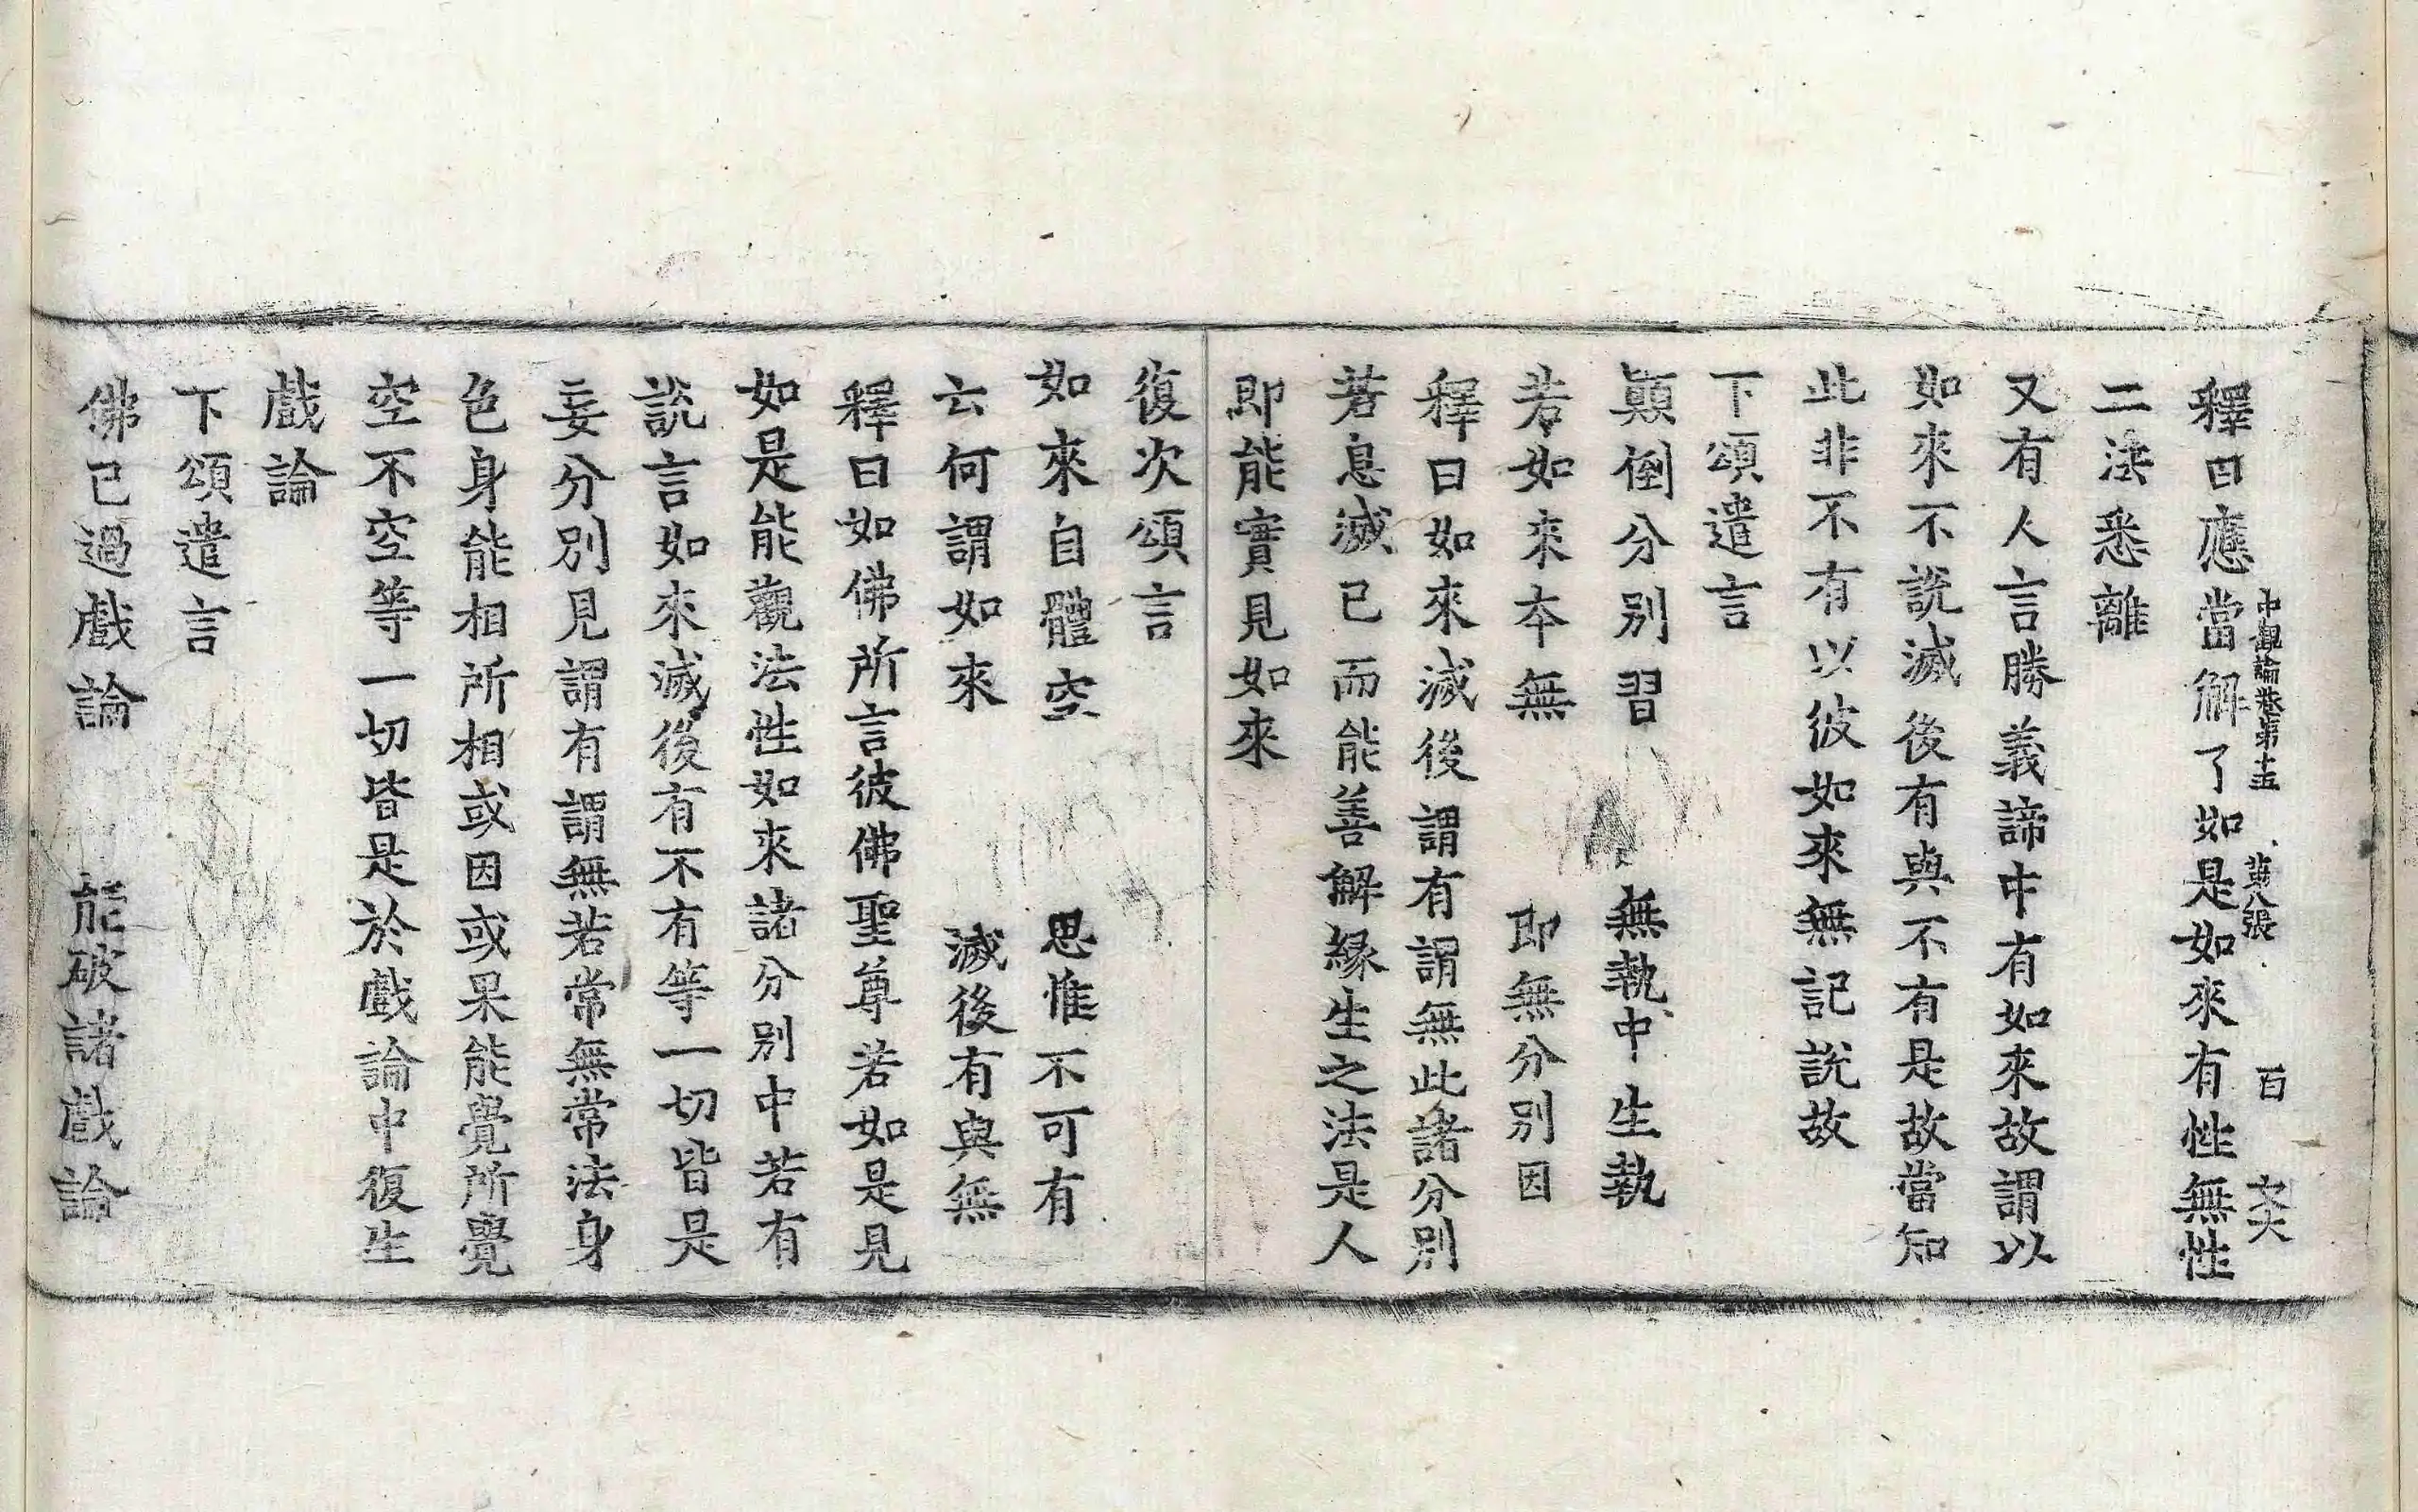 釋曰應當解了如是如來有性無性
中觀論卷第十五 第八張 百 六大
二法悉離
又有人言勝義諦中有如來故謂以
如來不說滅後有與不有是故當知
此非不有以彼如來無記說故
下頌遣言
顛倒分別習 無執中生執
若如來本無 即無分別因
釋曰如來滅後謂有謂無此諸分別
若息滅已而能善解緣生之法是人
即能實見如來
復次頌言
如來自體空 思惟不可有
云何謂如來 滅後有與無
釋曰如佛所言彼佛聖尊若如是見
如是能觀法性如來諸分別中若有
說言如來滅後有不有等一切皆是
妄分別見謂有謂無若常無常法身
色身能相所相或因或果能覺所覺
空不空等一切皆是於戲論中復生
戲論
下頌遣言
佛已過戲論 能破諸戲論